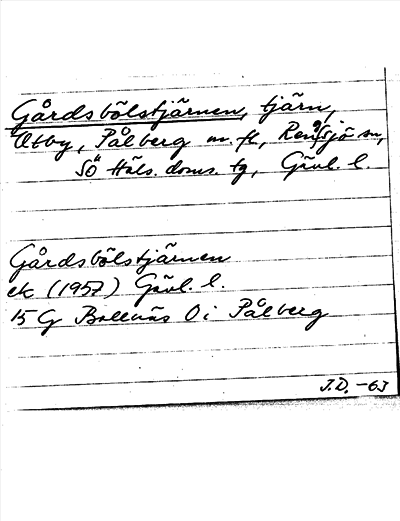 Gårdsbölstjärnen, tjärn,
Utby, Pålberg m. fl., Rengsjö sn,
SÖ Häls. doms. tg, Gävl. l.
Gårdsbölstjärnen
ek (1957) Gävl. l.
15 G Bollnäs O i Pålberg
J.D. -63